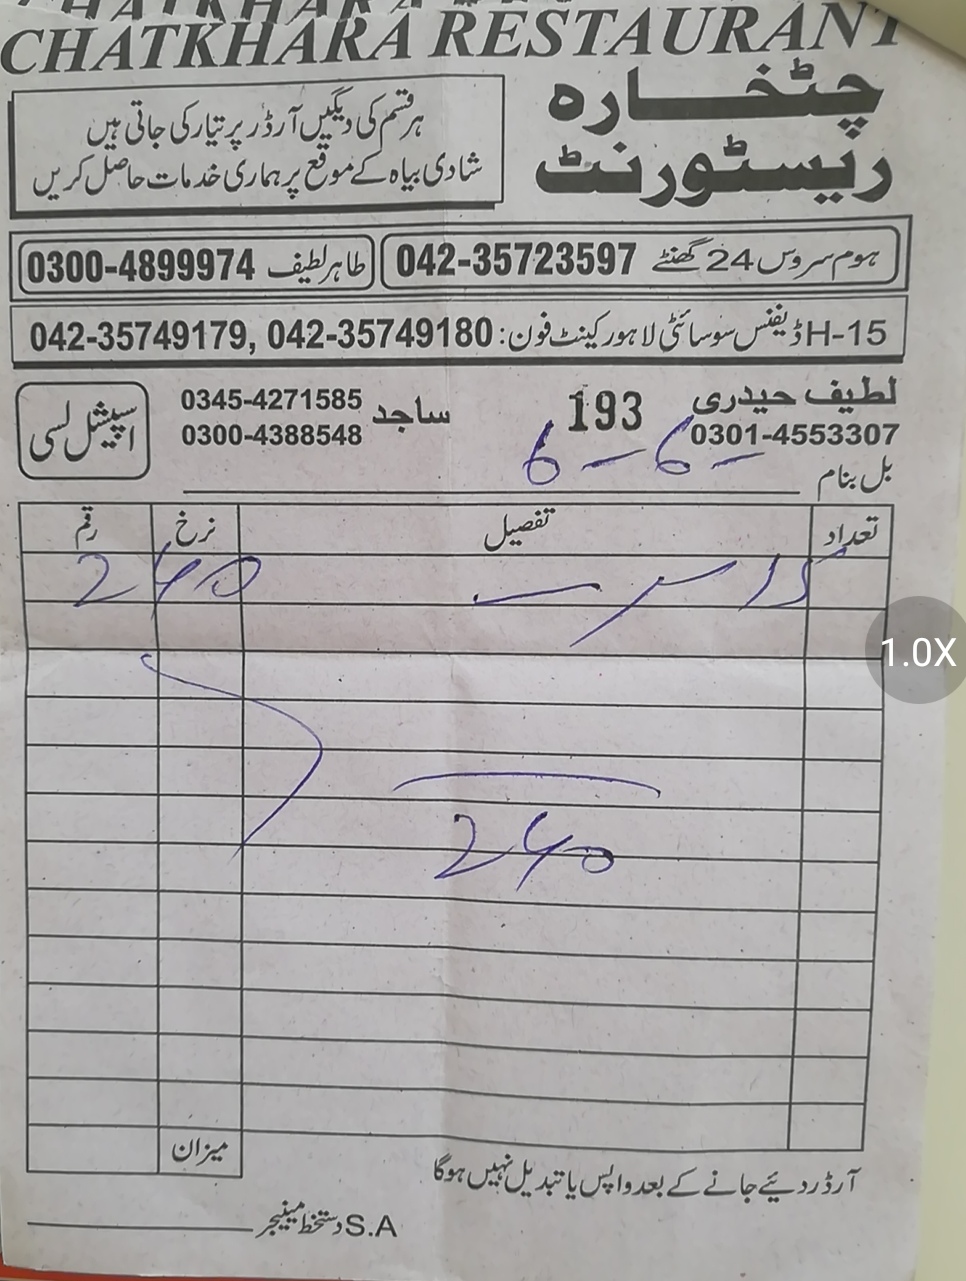 CHATKHARA RESTAURANT
چٹخارہ
ریسٹورنٹ
ہر قسم کی دیگیں آرڈر پر تیار کی جاتی ہیں
شادی بیاہ کے موقع پر ہماری خدمات حاصل کریں
ہوم سروس 24 گھنٹے 042-35723597
طاہر لطیف 0300-4899974
H-15 ڈیفنس سوسائٹی لاہور کینٹ فون: 042-35749179, 042-35749180
لطیف حیدری
0301-4553307
193
ساجد
0345-4271585
0300-4388548
اسپیشل لسی
6-6-
بل بنام
تعداد تفصیل نرخ رقم
240
240
میزان
آرڈر دئیے جانے کے بعد واپس یا تبدیل نہیں ہوگا
S.A دستخط مینیجر
1.0X